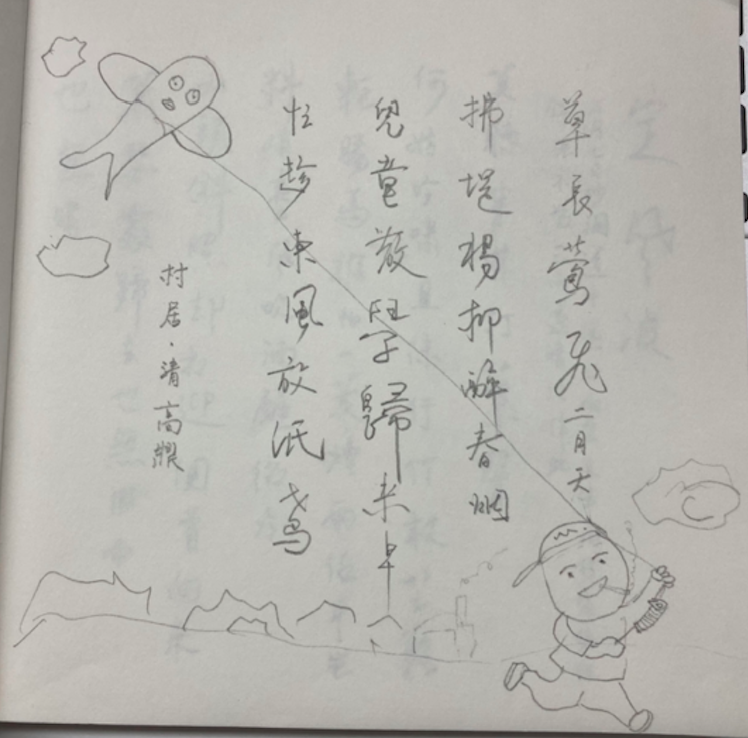 草長鶯飛二月天
拂堤楊柳醉春烟
兒童散學歸來早
忙趁東風放紙鳶
村居·清高鼎